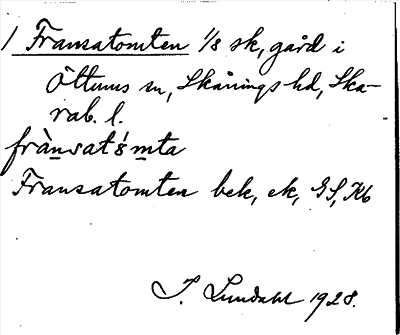 1 Fransatomten 1/8 sk, gård i
Öttums sn, Skånings hd, Ska-
rab. l.
frànsat mta
Fransatomten bek, ek, GS, Kb
I. Lundahl 1928.